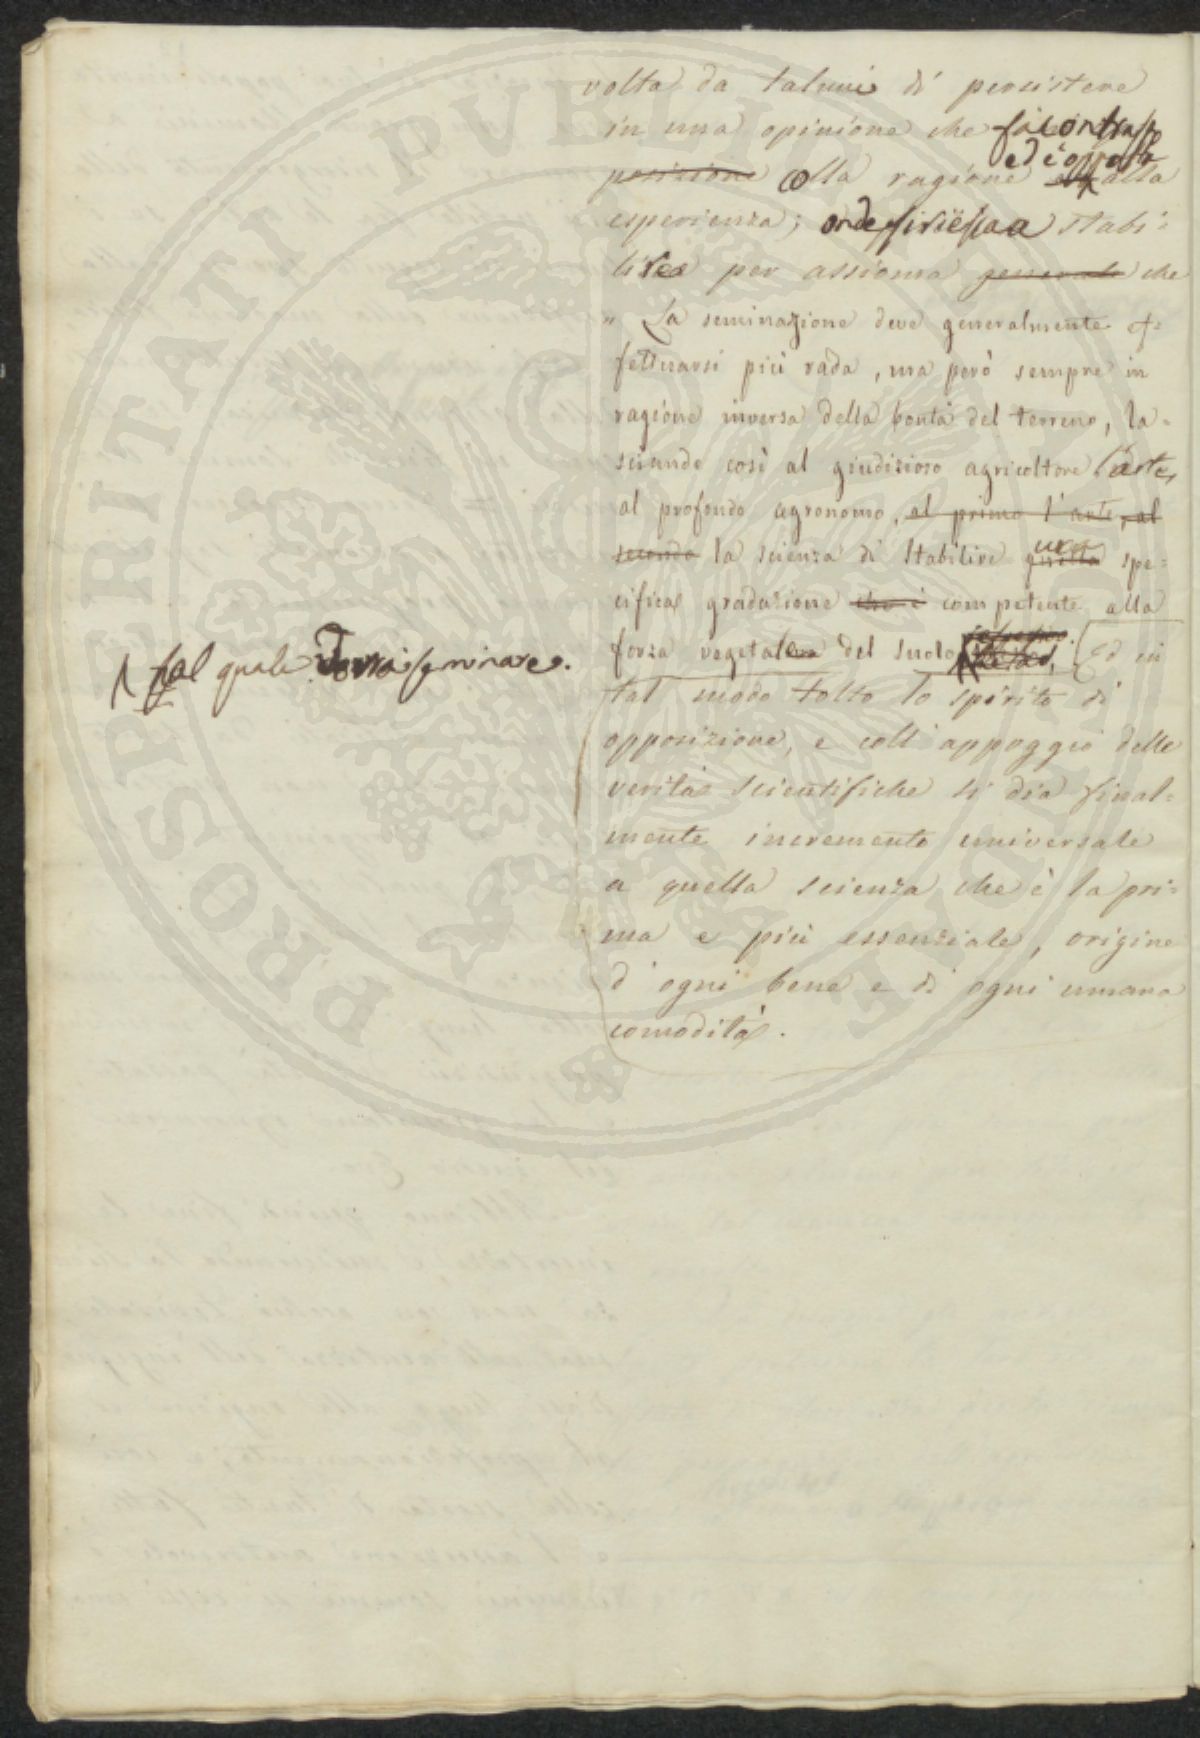 volta da taluni di persistere
in una opinione che fa contrasto
ed è opposta
posizione colla ragione alla
esperienza; onde si riesca a stabi=
lire per assioma generale che
„ La seminazione deve generalmente ef=
fettuarsi più rada, ma però sempre in
ragione inversa della bontà del terreno, la=
sciando così al giudizioso agricoltore l'arte,
al profondo agronomo, al primo l'arte, al
secondo la scienza di stabilire quella spe=
una
cifica gradazione che è competente alla
forza vegetativa del suolo Ed in
sul quale dovrai seminare.
tal modo tolto lo spirito di
opposizione, e coll'appoggio delle
verità scientifiche si dia final=
mente incremento universale
a quella scienza che è la pri=
ma e più essenziale, origine
d'ogni bene e di ogni umana
comodità.
PROSPERITATI PUBLICAE